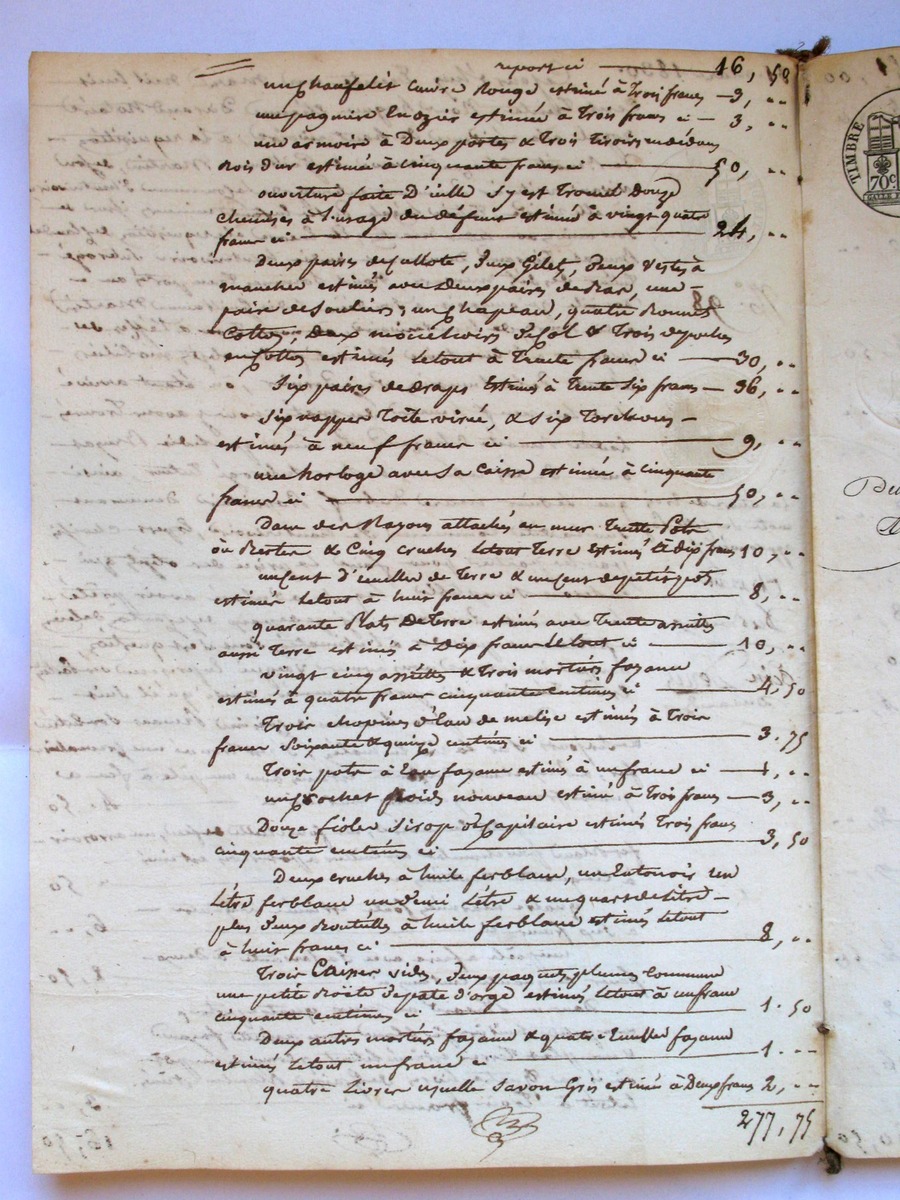 report ci 16, 50
un chaufelit cuivre Rouge estimé à Trois francs 3, ..
une pagniere En ozier estimée à Trois francs ci 3, ..
une armoire à Deux portes & Trois Tiroirs en dedans
Bois dur estimée à Cinquante francs ci 50, ..
ouverture faite D'icelle s'y est Trouvé Douze
chemises à l'usage du défunt estimé à vingt quatre
francs ci 24, ..
Deux paires de Culotte, Deux Gilet, deux vestes à
manches estimés avec Deux paires de Bas, une
paire de souliers, un chapeau, quatre Bonnets
Cotton, Deux mouchoirs de Col & Trois de poches
en Cotton estimés le tout à Trente francs ci 30, ..
Six paires de draps Estimés à Trente Six francs 36, ..
Six nappes Toile & six Torchons
estimés à neuf francs ci 9, ..
une horloge avec sa Caisse estimée à Cinquante
francs ci 50, ..
Dans des Rayons attachés au mur Trente Pots
& Cinq cruches le tout Terre Estimés à dix francs 10, ..
un Cent d'ecuelles de Terre & un Cent de petits pots
estimés le tout à huit francs ci 8, ..
quarante Plats De Terre estimés avec Trente assiettes
aussi Terre estimés à Dix francs le tout ci 10, ..
vingt cinq assiettes & Trois mortiers fayance
estimés à quatre francs cinquante Centimes ci 4, 50
Trois chopines d'Eau de melise estimés à Trois
francs Soixante & quinze centimes ci 3. 75
Trois pots à Eau fayance estimés à un franc ci 1, ..
un crochet poids nouveau estimé à Trois francs 3, ..
Douze fioles Sirop de Capilaire estimés Trois francs
cinquante centimes ci 3, 50
Deux cruches à huile ferblanc, un Entonoir un
Litre ferblanc un demi Litre & un quart de litre
plus deux Bouteilles à huile ferblanc estimés le tout
à huit francs ci 8, ..
Trois Caisses vides, deux paquets plumes Commune
une petite Boëte de pate d'orge estimés le tout à un franc
cinquante centimes ci 1. 50
Deux autres mortiers fayance & quatre Ecuelles fayance
estimés le tout un franc ci 1. ..
quatre Livres usuelle Savon Gris estimé à Deux francs 2, ..
277, 75
TIMBRE
70c